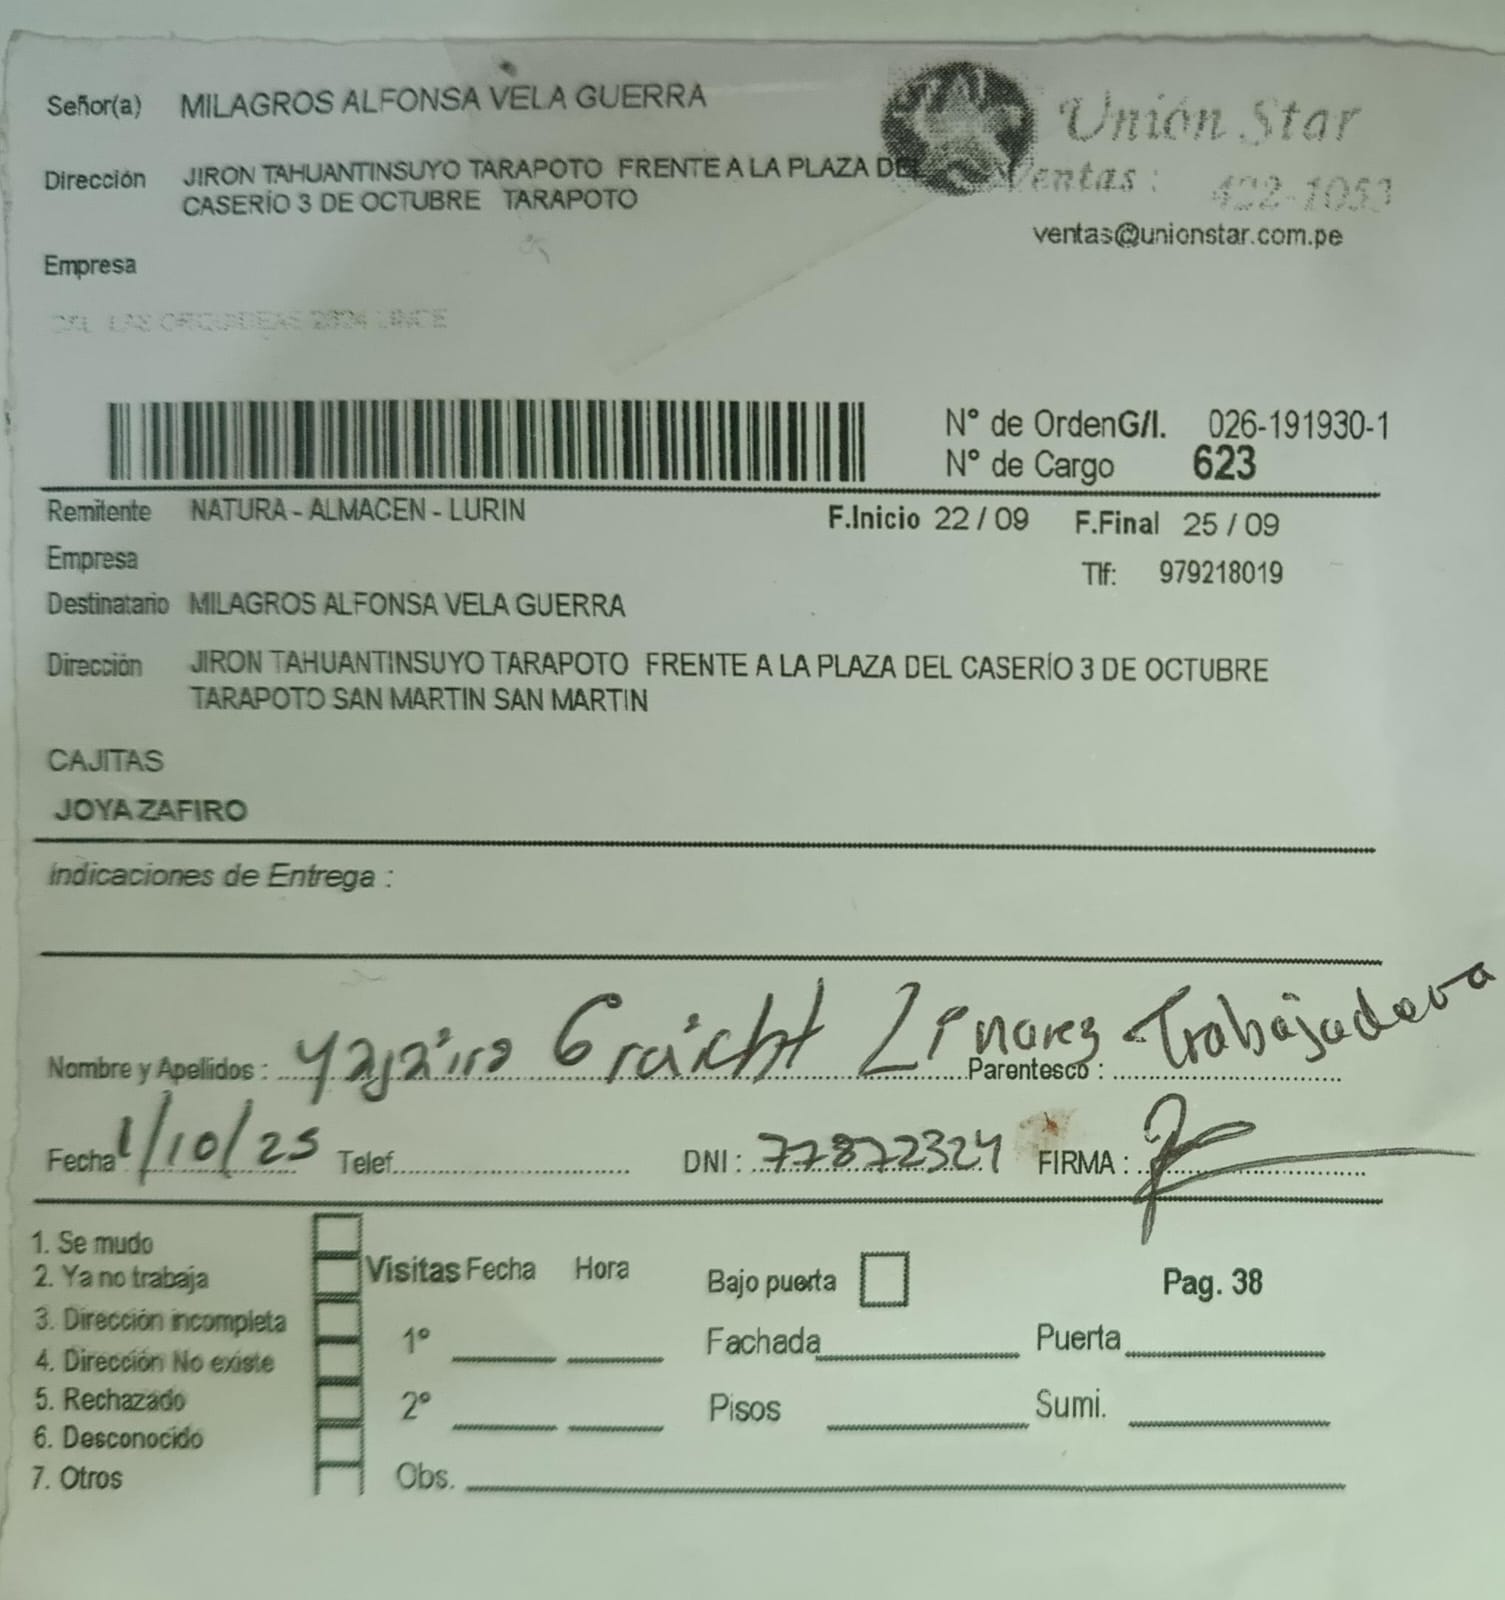 Señor(a) MILAGROS ALFONSA VELA GUERRA
Unión Star
Dirección JIRON TAHUANTINSUYO TARAPOTO FRENTE A LA PLAZA DEL
CASERÍO 3 DE OCTUBRE TARAPOTO
Ventas : 422-1053
ventas@unionstar.com.pe
Empresa
CAL LAS ORQUIDEAS 2624 LINCE
N° de OrdenG/I. 026-191930-1
N° de Cargo 623
Remitente NATURA - ALMACEN - LURIN F.Inicio 22 / 09 F.Final 25 / 09
Empresa Tlf: 979218019
Destinatario MILAGROS ALFONSA VELA GUERRA
Dirección JIRON TAHUANTINSUYO TARAPOTO FRENTE A LA PLAZA DEL CASERÍO 3 DE OCTUBRE
TARAPOTO SAN MARTIN SAN MARTIN
CAJITAS
JOYA ZAFIRO
Indicaciones de Entrega :
Nombre y Apellidos : Linarez Parentesco : Trabajadora
Fecha 1/10/25 Telef. DNI : 77872324 FIRMA :
1. Se mudo
2. Ya no trabaja
3. Dirección incompleta
4. Dirección No existe
5. Rechazado
6. Desconocido
7. Otros
Visitas Fecha Hora
1°
2°
Obs.
Bajo puerta Pag. 38
Fachada Puerta
Pisos Sumi.